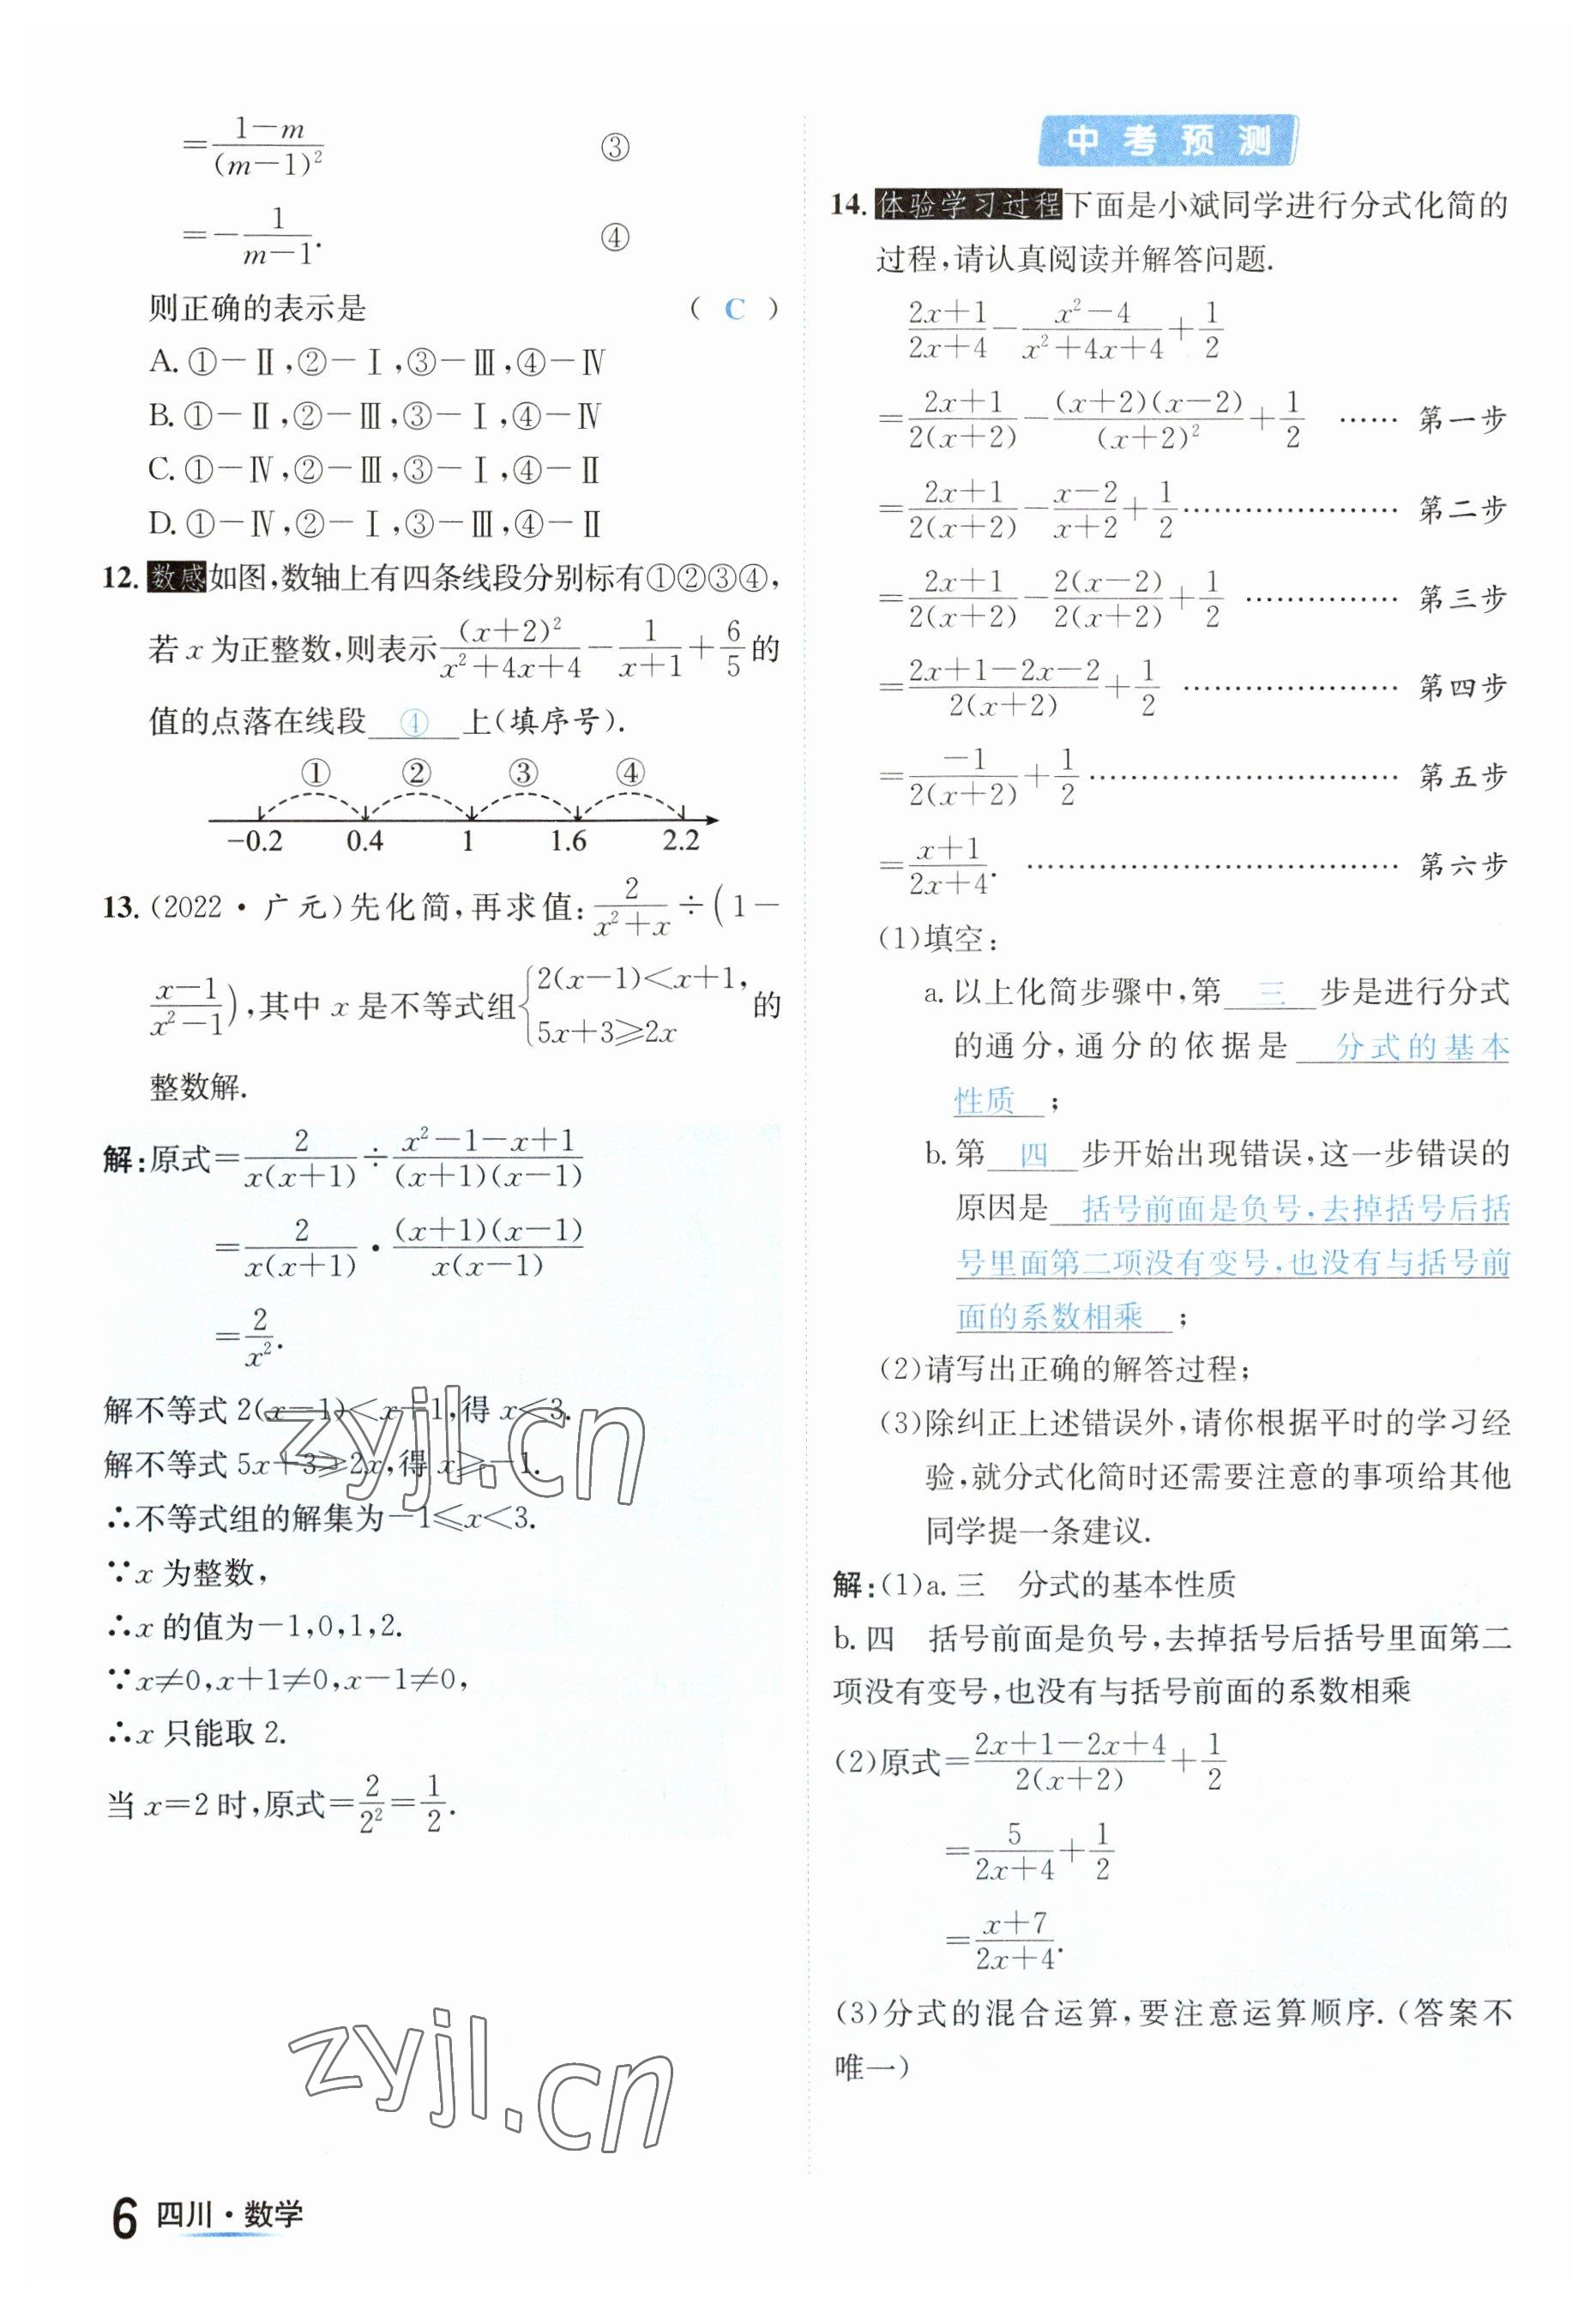 =\frac{1-m}{(m-1)^2} ③
=-\frac{1}{m-1}. ④
则正确的表示是 ( C )
A. ①-Ⅱ,②-Ⅰ,③-Ⅲ,④-Ⅳ
B. ①-Ⅱ,②-Ⅲ,③-Ⅰ,④-Ⅳ
C. ①-Ⅳ,②-Ⅲ,③-Ⅰ,④-Ⅱ
D. ①-Ⅳ,②-Ⅰ,③-Ⅲ,④-Ⅱ
12. 数感 如图,数轴上有四条线段分别标有①②③④,
若 x 为正整数,则表示\frac{(x+2)^2}{x^2+4x+4}-\frac{1}{x+1}+\frac{6}{5}的
值的点落在线段 ④ 上(填序号).
① ② ③ ④
-0.2 0.4 1 1.6 2.2
13. (2022·广元)先化简,再求值:\frac{2}{x^2+x}÷(1-
\frac{x-1}{x^2-1}),其中 x 是不等式组{2(x-1)<x+1, 5x+3≥2x 的
整数解.
解:原式=\frac{2}{x(x+1)}÷\frac{x^2-1-x+1}{(x+1)(x-1)}
=\frac{2}{x(x+1)}·\frac{(x+1)(x-1)}{x(x-1)}
=\frac{2}{x^2}.
解不等式 2(x-1)<x+1,得 x<3.
解不等式 5x+3≥2x,得 x≥-1.
∴不等式组的解集为-1≤x<3.
∵x 为整数,
∴x 的值为-1,0,1,2.
∵x≠0,x+1≠0,x-1≠0,
∴x 只能取 2.
当 x=2 时,原式=\frac{2}{2^2}=\frac{1}{2}.
zyjl.cn
zyjl.cn
6 四川·数学
中考预测
14. 体验学习过程 下面是小斌同学进行分式化简的
过程,请认真阅读并解答问题.
\frac{2x+1}{2x+4}-\frac{x^2-4}{x^2+4x+4}+\frac{1}{2}
=\frac{2x+1}{2(x+2)}-\frac{(x+2)(x-2)}{(x+2)^2}+\frac{1}{2} …… 第一步
=\frac{2x+1}{2(x+2)}-\frac{x-2}{x+2}+\frac{1}{2}…………………… 第二步
=\frac{2x+1}{2(x+2)}-\frac{2(x-2)}{2(x+2)}+\frac{1}{2} …………… 第三步
=\frac{2x+1-2x-2}{2(x+2)}+\frac{1}{2} ………………… 第四步
=\frac{-1}{2(x+2)}+\frac{1}{2}………………………… 第五步
=\frac{x+1}{2x+4}. ……………………………… 第六步
(1)填空:
a. 以上化简步骤中,第 三 步是进行分式
的通分,通分的依据是 分式的基本
性质 ;
b. 第 四 步开始出现错误,这一步错误的
原因是 括号前面是负号,去掉括号后括
号里面第二项没有变号,也没有与括号前
面的系数相乘 ;
(2)请写出正确的解答过程;
(3)除纠正上述错误外,请你根据平时的学习经
验,就分式化简时还需要注意的事项给其他
同学提一条建议.
解:(1)a. 三 分式的基本性质
b. 四 括号前面是负号,去掉括号后括号里面第二
项没有变号,也没有与括号前面的系数相乘
(2)原式=\frac{2x+1-2x+4}{2(x+2)}+\frac{1}{2}
=\frac{5}{2x+4}+\frac{1}{2}
=\frac{x+7}{2x+4}.
(3)分式的混合运算,要注意运算顺序.(答案不
唯一)